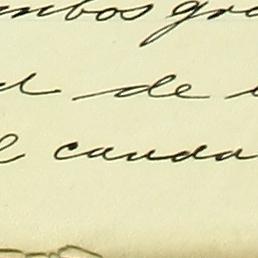 ambos gra
d de
el cauda